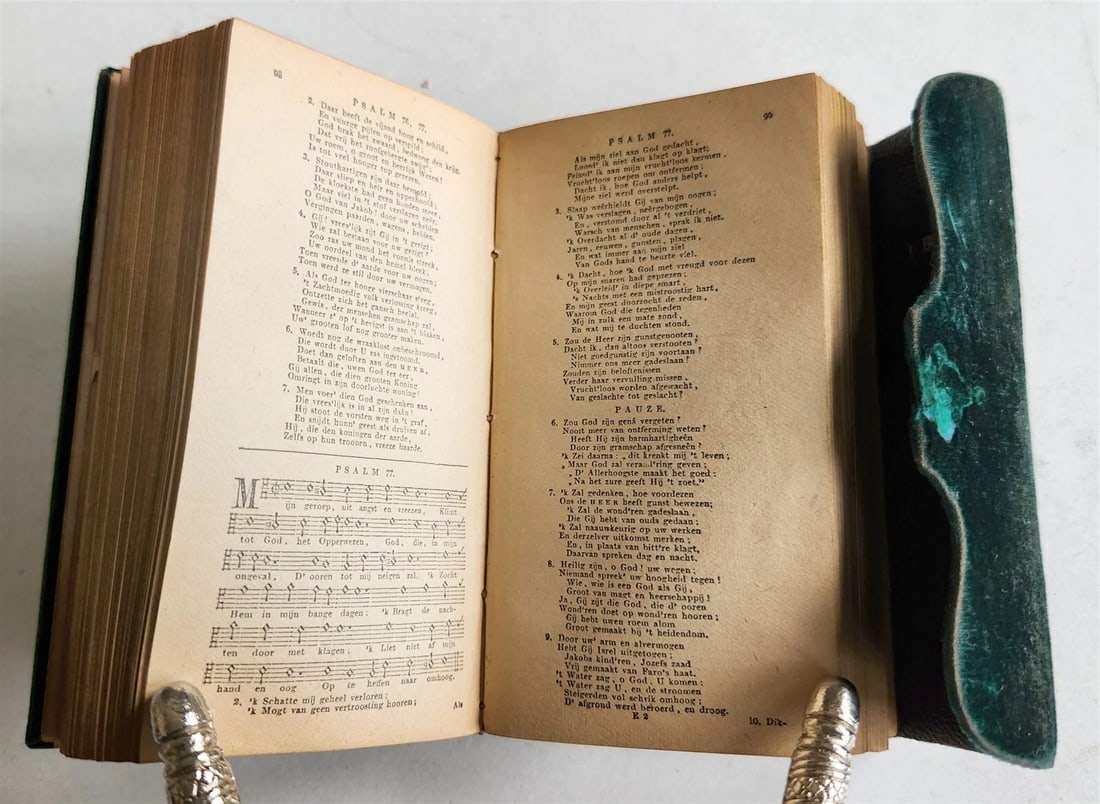 98
PSALM 76, 77.
2. Daar heeft de vijand boog en schild,
En vuurge pijlen op verspild;
God brak het zwaard, bedwong den krijg.
Dat vrij het roofgebergte zwijg'
Uw roem, o groot en heerlijk Wezen!
Is tot veel hooger top gerezen.
3. Stouthartigen zijn daar beroofd;
Daar sliep en heir en opperhoofd;
De kloekste had geen handen meer.
Maar viel in 't stof verslagen neêr.
O God van Jakob! door uw schelden
Vergingen paarden, wagens, helden.
4. Gij! vrees'lijk zijt Gij in 't gerigt;
Wie zal bestaan voor uw gezigt?
Zoo ras uw mond het vonnis streek,
Uw oordeel van den hemel bleek,
Toen vreesde d' aarde voor uw oogen;
Toen werd ze stil door uw vermogen.
5. Als God ter hooge vierschaar steeg,
't Zachtmoedig volk verlossing kreeg,
Ontzette zich het gansch heelal.
Gewis, der menschen gramschap zal,
Wanneer z' op 't hevigst is aan 't blaken,
Uw' grooten lof nog grooter maken.
6. Woedt nog de wraaklust onbeschroomd,
Die wordt door U ras ingetoomd.
Doet dan geloften aan den HEER,
Betaalt die, uwen God ter eer,
Gij allen, die dien grooten Koning
Omringt in zijn doorluchte woning!
7. Men voer' dien God geschenken aan,
Die vrees'lijk is in al zijn daân!
Hij stoot de vorsten weg in 't graf,
En snijdt hunn' geest als druiven af.
Hij, die den koningen der aarde,
Zelfs op hun troonen, vreeze baarde.
PSALM 77.
Mijn geroep, uit angst en vreezen, Klimt
tot God, het Opperwezen, God, die, in mijn
ongeval, D' ooren tot mij neigen zal. 'k Zocht
Hem in mijn bange dagen; 'k Bragt de nach-
ten door met klagen; 'k Liet niet af mijn
hand en oog Op te heffen naar omhoog.
2. 'k Schatte mij geheel verloren;
'k Mogt van geen vertroosting hooren;
Als
99
PSALM 77.
Als mijn ziel aan God gedacht,
Loosd' ik niet dan klagt op klagt;
Peinsd' ik aan mijn vrucht'loos kermen,
Vrucht'loos roepen om ontfermen;
Dacht ik, hoe God anders helpt,
Mijne ziel werd overstelpt.
3. Slaap weêrhieldt Gij van mijn oogen;
'k Was verslagen, neêrgebogen,
En, verstomd door al 't verdriet,
Warsch van menschen, sprak ik niet.
'k Overdacht al d' oude dagen,
Jaren, eeuwen, gunsten, plagen,
En wat immer aan mijn ziel
Van Gods hand te beurte viel.
4. 'k Dacht, hoe 'k God met vreugd voor dezen
Op mijn snaren had geprezen;
'k Overleid' in diepe smart,
's Nachts met een mistroostig hart,
En mijn geest doorzocht de reden,
Waarom God die tegenheden
Mij in zulk een mate zond,
En wat mij te duchten stond.
5. Zou de Heer zijn gunstgenooten,
Dacht ik, dan altoos verstooten?
Niet goedgunstig zijn voortaan?
Nimmer ons meer gadeslaan?
Zouden zijn beloftenissen
Verder haar vervulling missen,
Vrucht'loos worden afgewacht,
Van geslachte tot geslacht?
PAUZE.
6. Zou God zijn genâ vergeten?
Nooit meer van ontferming weten?
Heeft Hij zijn barmhartigheên
Door zijn gramschap afgesneên?
'k Zei daarna: „dit krenkt mij 't leven;
„Maar God zal verand'ring geven;
„D' Allerhoogste maakt het goed;
„Na het zure geeft Hij 't zoet."
7. 'k Zal gedenken, hoe voordezen
Ons de HEER heeft gunst bewezen;
'k Zal de wond'ren gadeslaan,
Die Gij hebt van ouds gedaan;
'k Zal naauwkeurig op uw werken
En derzelver uitkomst merken;
En, in plaats van bitt're klagt,
Daarvan spreken dag en nacht.
8. Heilig zijn, o God! uw wegen;
Niemand spreek' uw hoogheid tegen!
Wie, wie is een God als Gij,
Groot van magt en heerschappij!
Ja, Gij zijt die God, die d' ooren
Wond'ren doet op wond'ren hooren;
Gij hebt uwen roem alom
Groot gemaakt bij 't heidendom.
9. Door uw' arm en alvermogen
Hebt Gij Isrel uitgetogen;
Jakobs kind'ren, Jozefs zaad
Vrij gemaakt van Faro's haat.
't Water zag, o God, U komen;
't Water zag U, en de stroomen
Steigerden vol schrik omhoog;
D' afgrond werd beroerd, en droog.
E 2
10. Dik-